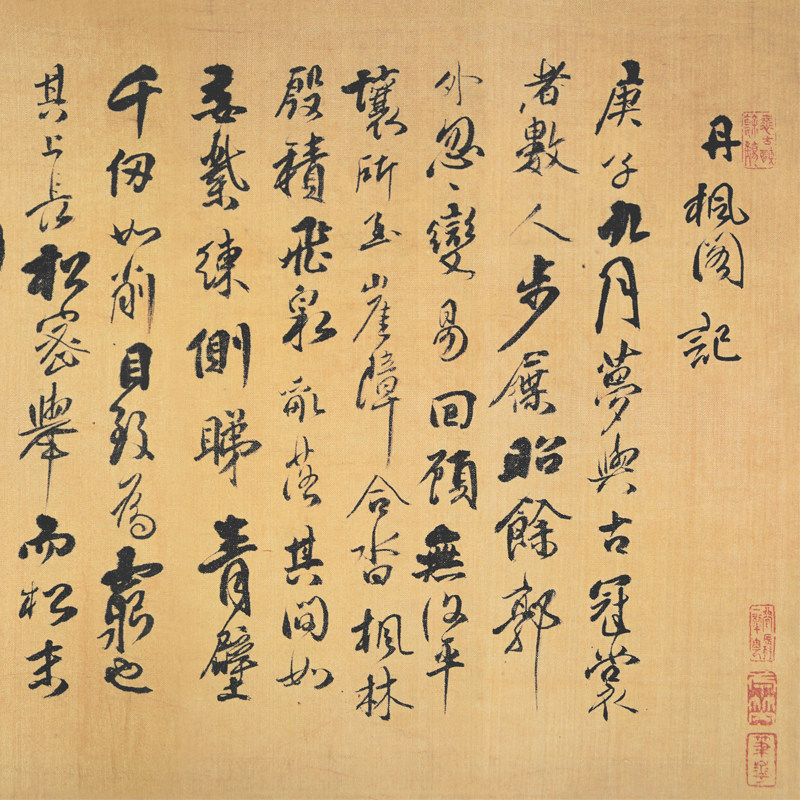 丹楓閣記
庚子九月夢與古冠裳
者數人步屧昭餘郭
外忽〻變易回顧無復平
壤所至崖障合沓楓林
殷積飛泉亂落其間如
委縈練側睇青壁
千仞如削目致為窮也
其上長松密舉而松末